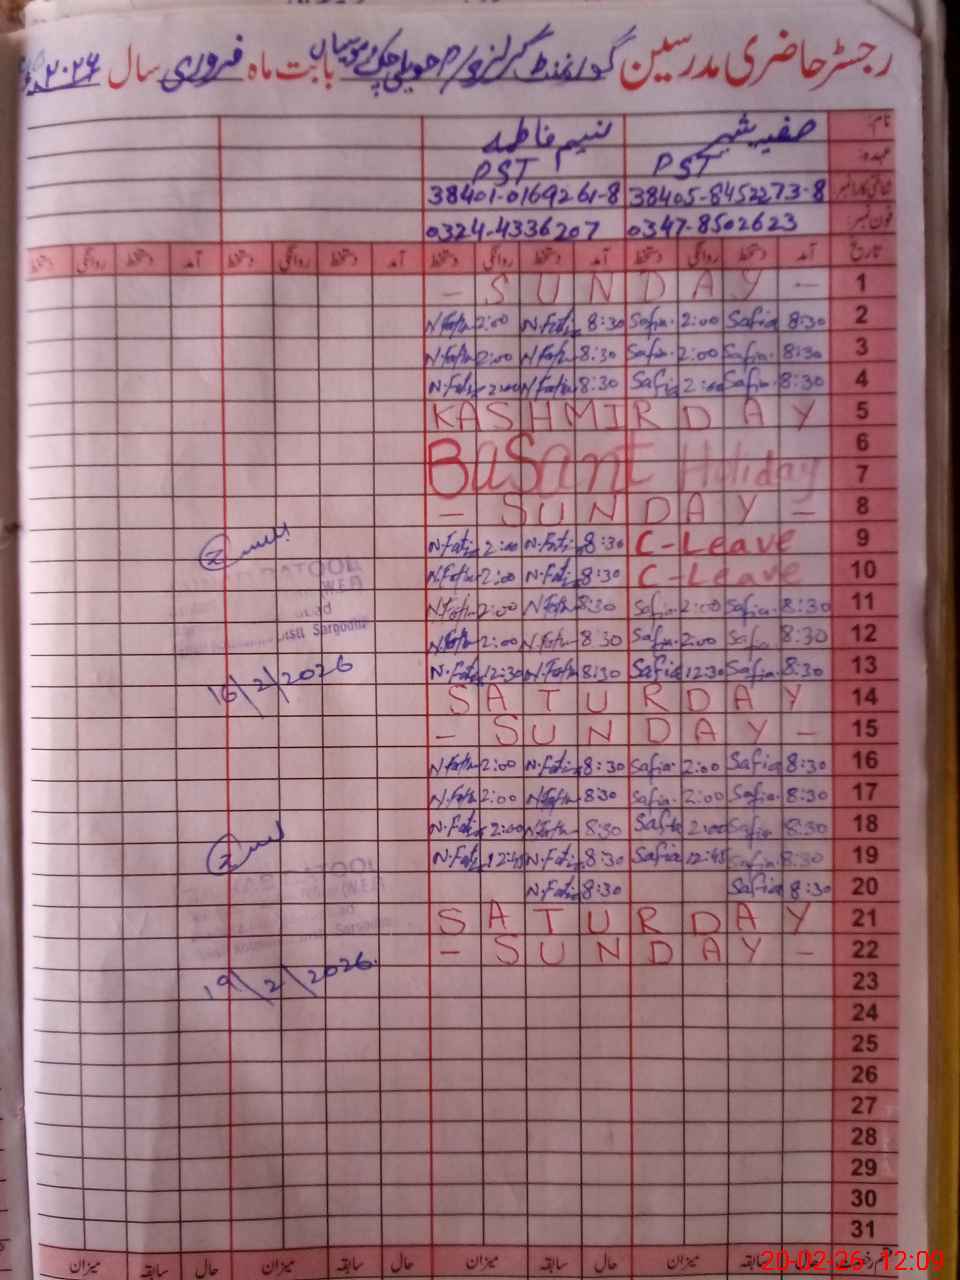 رجسٹر حاضری مدرسین گورنمنٹ گرلز بابت ماہ فروری سال ۲۰۲۶
نام: صفیہ نسیم فاطمہ
عہدہ: PST PST
شناختی کارڈ نمبر 38405-8452273-8 38401-0169261-8
فون نمبر: 0347-8502623 0324-4336207
تاریخ آمد دستخط روانگی دستخط آمد دستخط روانگی دستخط آمد دستخط روانگی دستخط آمد دستخط روانگی دستخط
- SUNDAY - 1
N.Fati 2:00 N.Fati 8:30 Safia 2:00 Safia 8:30 2
N.Fati 2:00 N.Fati 8:30 Safia 2:00 Safia 8:30 3
N.Fati 2:00 N.Fati 8:30 Safia 2:00 Safia 8:30 4
KASHMIR DAY 5
6
Basant Holiday 7
- SUNDAY - 8
N.Fati 2:00 N.Fati 8:30 C-Leave 9
N.Fati 2:00 N.Fati 8:30 C-Leave 10
N.Fati 2:00 N.Fati 8:30 Safia 2:00 Safia 8:30 11
N.Fati 2:00 N.Fati 8:30 Safia 2:00 Safia 8:30 12
N.Fati 12:30 N.Fati 8:30 Safia 12:30 Safia 8:30 13
SATURDAY 14
- SUNDAY - 15
N.Fati 2:00 N.Fati 8:30 Safia 2:00 Safia 8:30 16
N.Fati 2:00 N.Fati 8:30 Safia 2:00 Safia 8:30 17
N.Fati 2:00 N.Fati 8:30 Safia 2:00 Safia 8:30 18
N.Fati 12:45 N.Fati 8:30 Safia 12:45 Safia 8:30 19
N.Fati 8:30 Safia 8:30 20
SATURDAY 21
- SUNDAY - 22
23
24
25
26
27
28
29
30
31
Sargodha
16/2/2026
19/2/2026.
سابقہ حال میزان سابقہ حال میزان سابقہ حال میزان
20-02-26 12:09